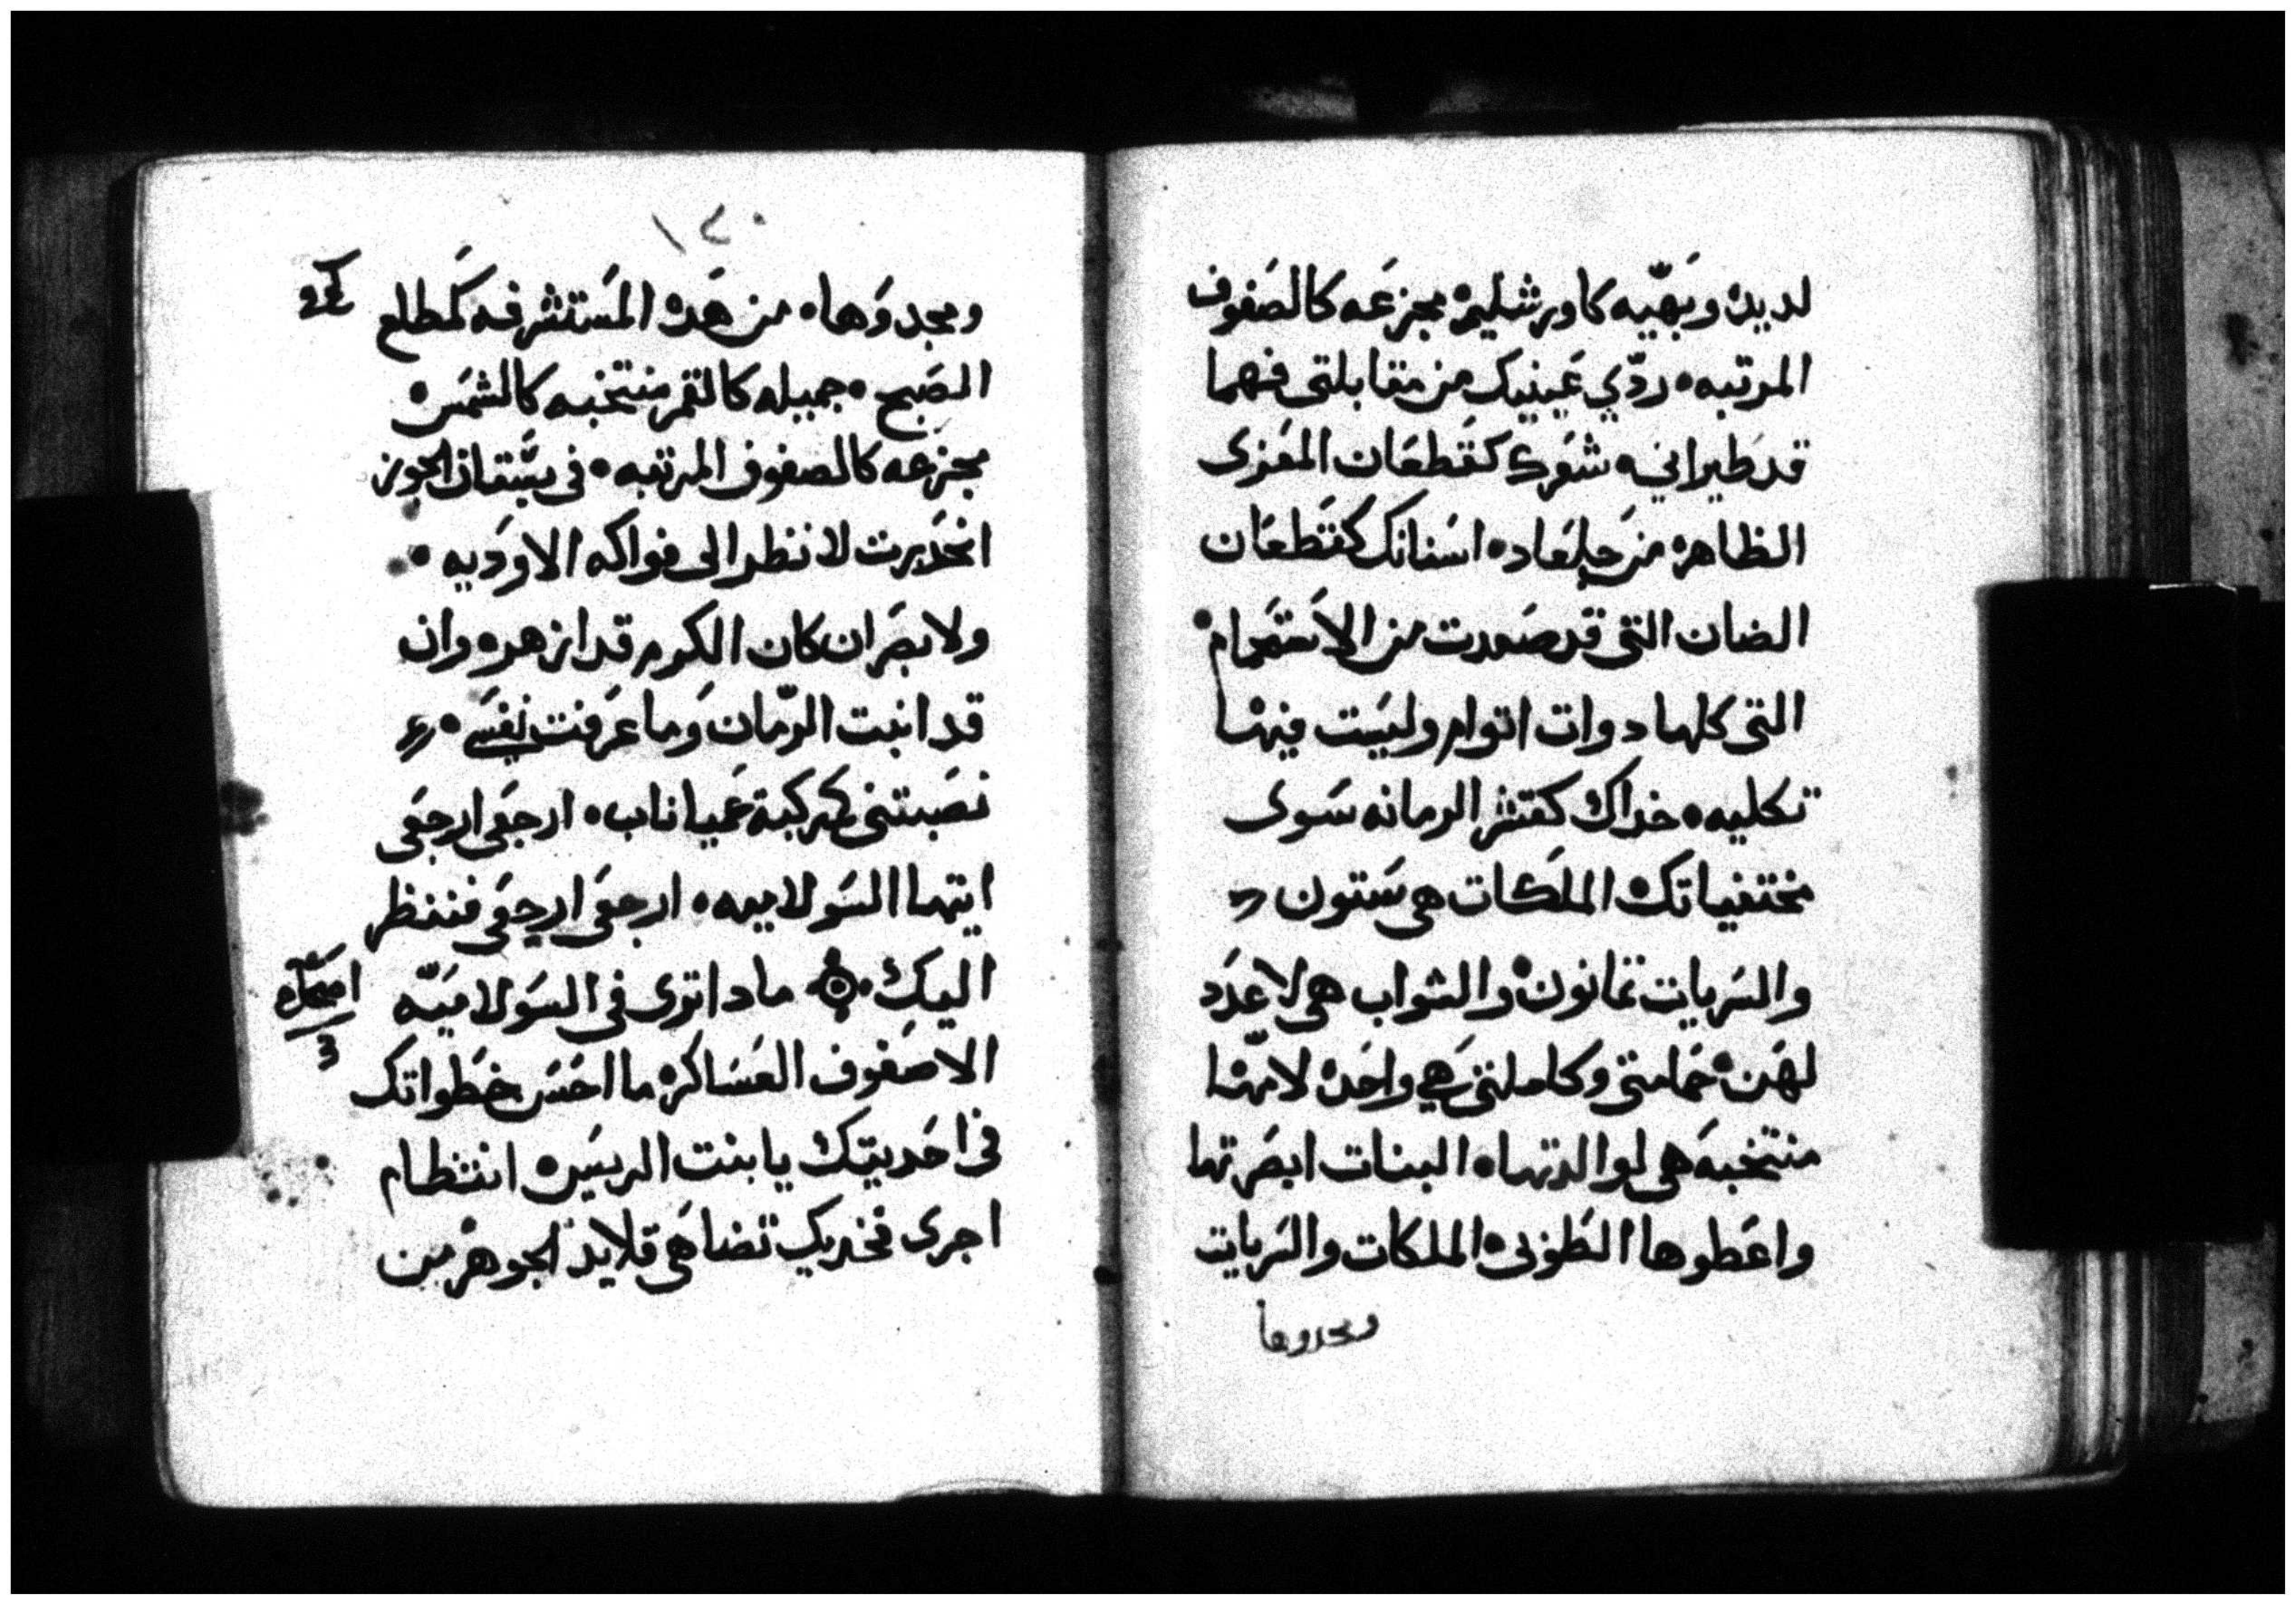 لديده وبَهّيه كاورشليم مجزعَه كالصَفوف
المرتبه ردّي عَينيك من مقابلتي فهما
قد طيراني شعَرك كقَطعَان المعَزى
الظاهره من جلعَاد اسَنانك كقَطعَان
الضان التي قد صَعدت من الاسَتحَمام
التي كلهاد وات اتوام وليسَت فيها
تكليه خداك كقشر الرمانه سَوى
مختفياتك الملكات هي سَتون
والسَريات ثمانون والشواب هي لا عدَد
لهَن حَمامتي وكاملتي هي واحَده لامّها
منتخبه هي لوالدتها البنات ابصَرتها
واعَطوها الطوبى الملكات والسَريات
ويمجدوها
١٢٠
ويمجدوَها من هَده المسَتشرفه كمَطلع
الصَبح جميله كالقمر منتخبه كالشمسَ
مجزعه كالصفوف المرتبه في بسَتان الجوز
انحَدرت لاننظر الى فواكه الاودَيه
ولابصَر ان كان الكرم قد ازهر وان
قد انبت الرمّان ومَا عرَفت نفسَي
نصَبتني كمركبة عَميناداب ارجعَي ارجعَي
ايتها السَولاميه ارجعَي ارجعَي فننظر
اليك مادا ترى في السَولاميَه
الاصَفوف العسَاكر ما احسَن خطَواتك
في احَديتك يا بنت الرييسَ انتظام
اجرى فخديك تضاهَي قلايد الجوهر من